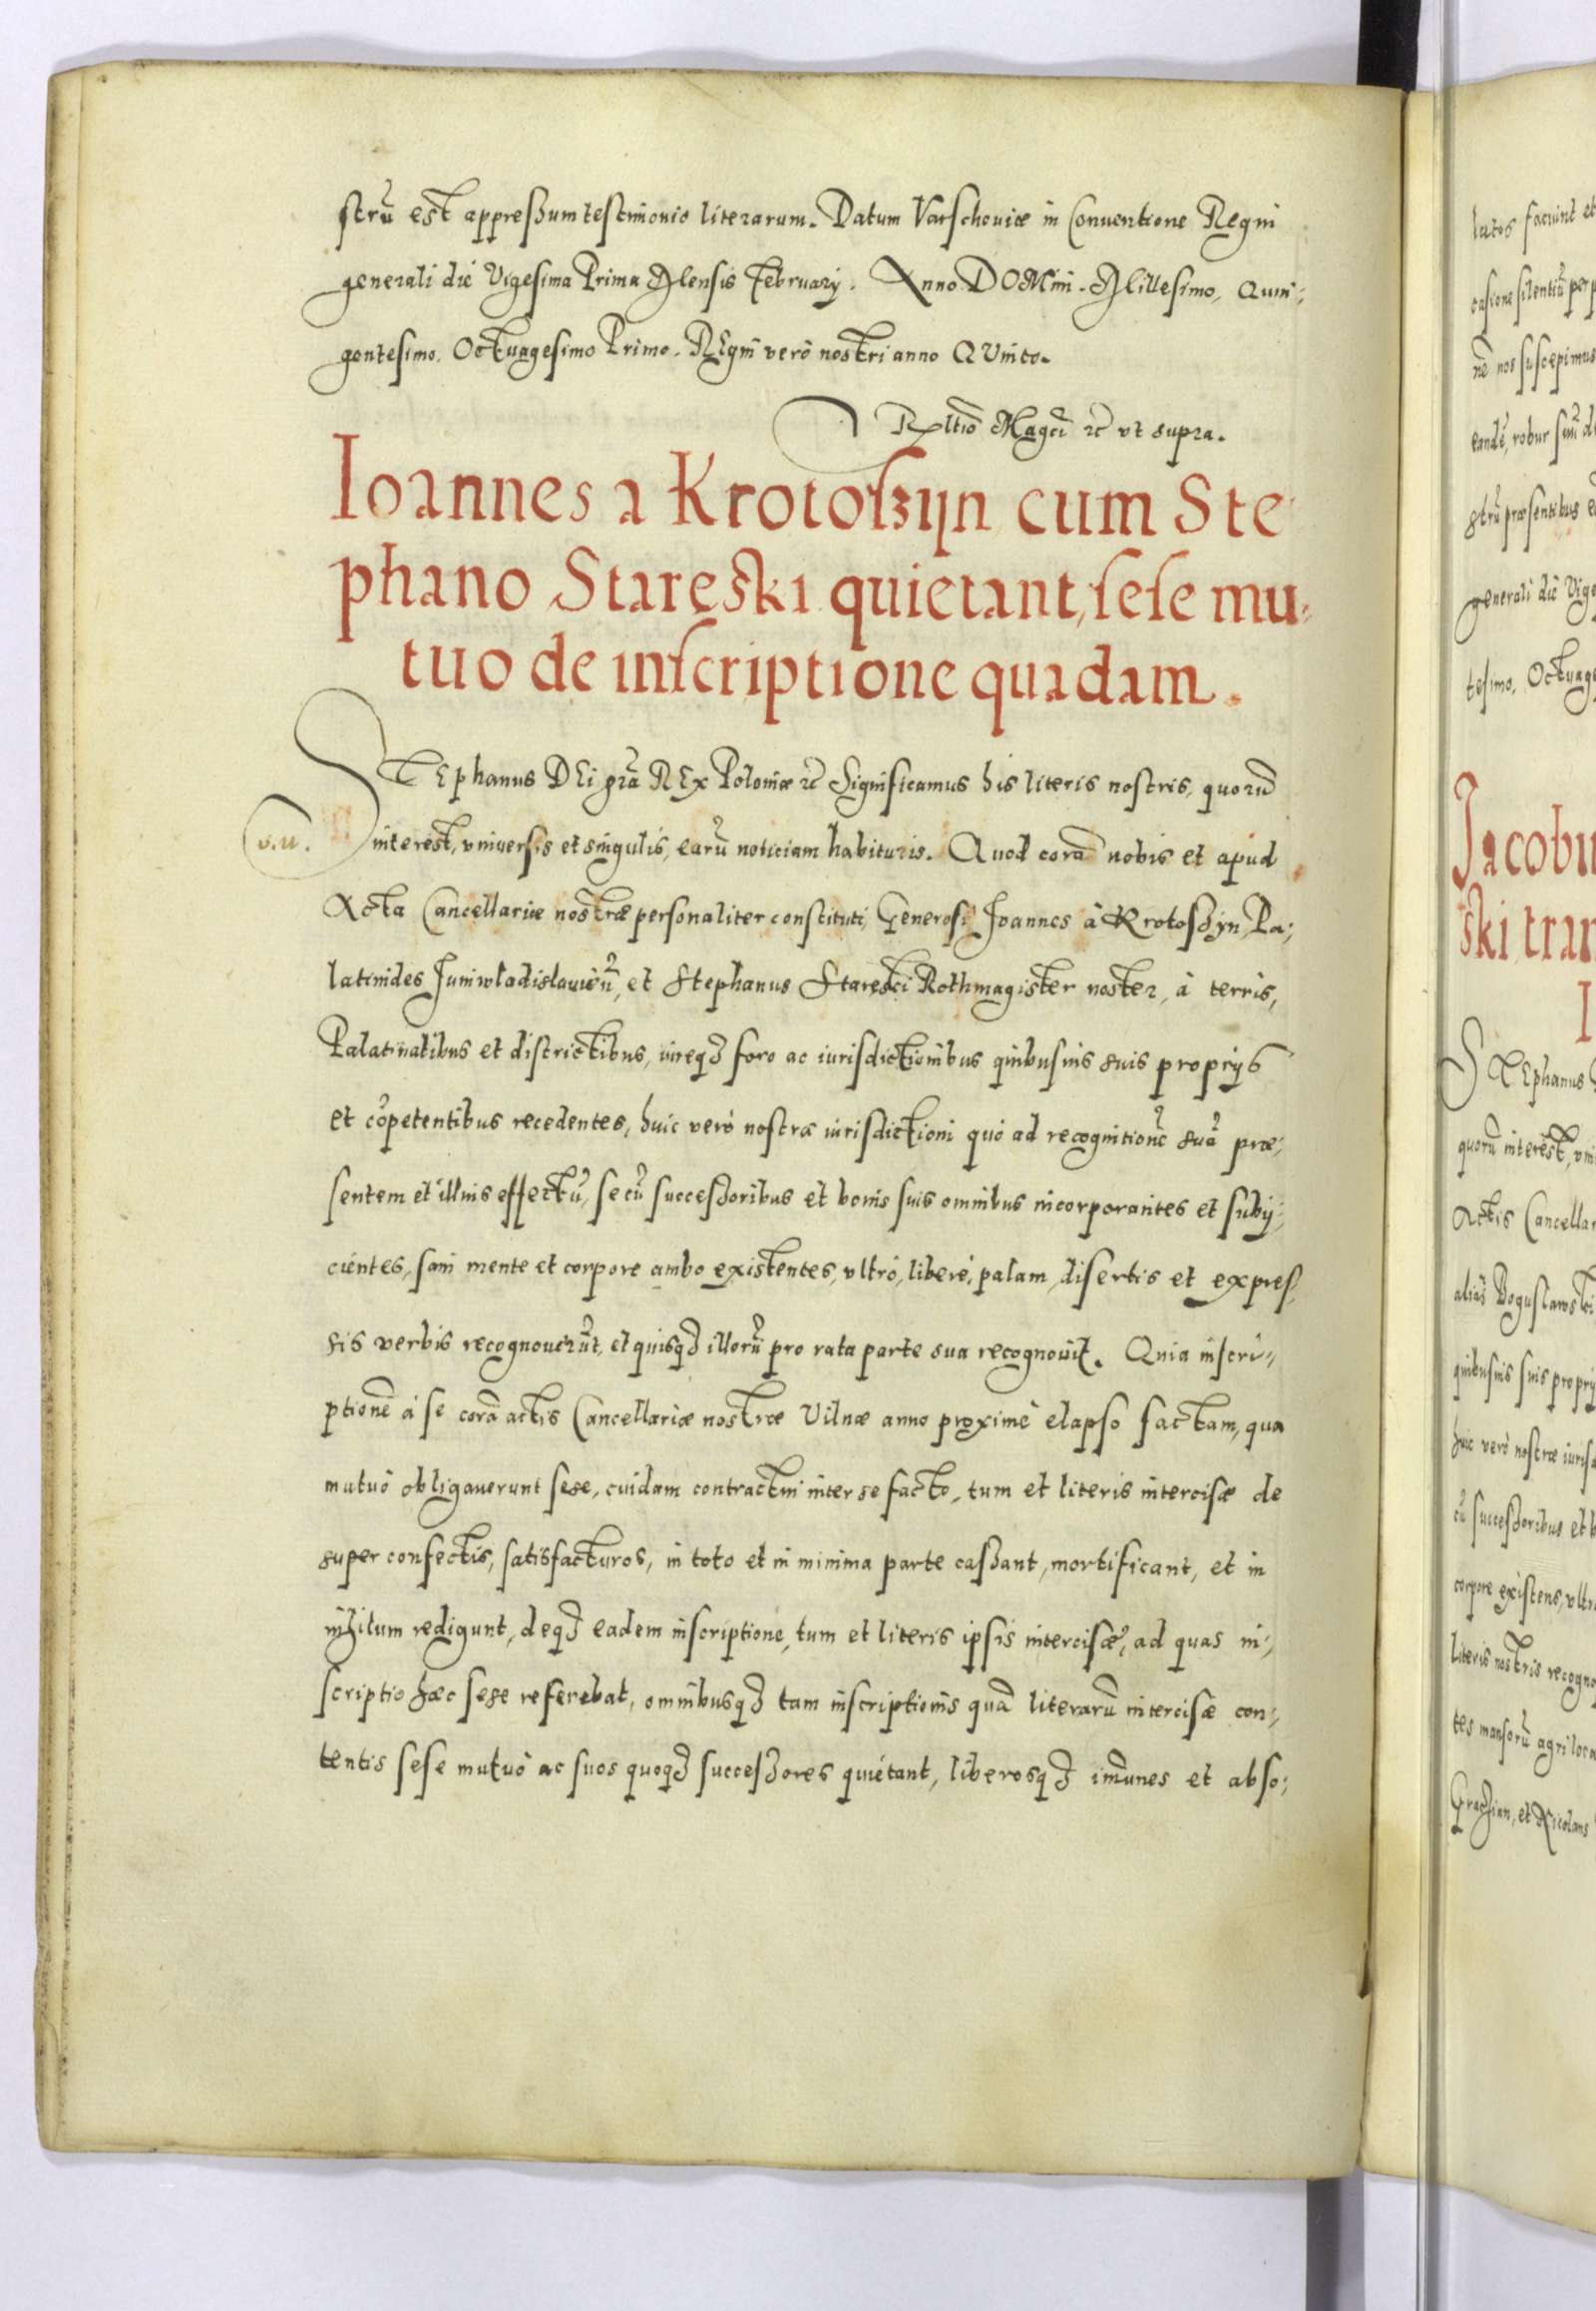 strũ est appressum testimonio literarum. Datum Varschouiæ in Conuentione Regni
generali die Vigesima Prima Mensis February. Anno DOMini. Millesimo, Quin¬
gentesimo, Octuagesimo Primo. REgni verò nostri anno QVinto.
Rltio Magci rc̃ vt supra.
Ioannes a Krotoszijn cum Ste
phano Staręski quietant, sese mu¬
tuo de inscriptione quadam.
STEphanus DEi gra REx Poloniæ rc̃ Significamus his literis nostris, quorũ
v.u. interest, vniuersis et singulis, earũ noticiam habituris. Quod corã nobis et apud
Acta Cancellariæ nostræ personaliter constituti, Generosi Joannes à Krotoszyn, Pa¬
latinides Juniwladislauieñ, et Stephanus Staręski Rothmagister noster, à terris,
Palatinatibus et districtibus, iureq3 foro ac iurisdictionibus quibusuis suis proprijs
et cõpetentibus recedentes, huic verò nostræ iurisdictioni quo ad recognitionẽ suã præ¬
sentem et illius effectũ, se cũ successoribus et bonis suis omnibus incorporantes et subij¬
cientes, sani mente et corpore ambo existentes, vltrò, liberè, palam, disertis et expres¬
sis verbis recognouerũt, et quisq3 illorũ pro rata parte sua recognouit. Quia inscri¬
ptionẽ à se corã actis Cancellariæ nostræ Vilnæ anno proximè elapso factam, qua
mutuò obligauerunt sese, cuidam contractui inter se facto, tum et literis intercisæ de
super confectis, satisfacturos, in toto et in minima parte cassant, mortificant, et in
nihilum redigunt, deq3 eadem inscriptione, tum et literis ipsis intercisæ, ad quas in¬
scriptio hæc sese referebat, omnibusq3 tam inscriptionis quã literarũ intercisæ con¬
tentis sese mutuò ac suos quoq3 successores quiétant, liberosq3 imũnes et abso¬
Jacobu
ski tran
I
STEphanus
quorũ interest, vni
Actis Cancellar
quibusuis suis proprij
huic verò nostræ iurisd
cũ successoribus et b
corpore existens, vltr
literis nostris recogno
tes mansorũ agri loca